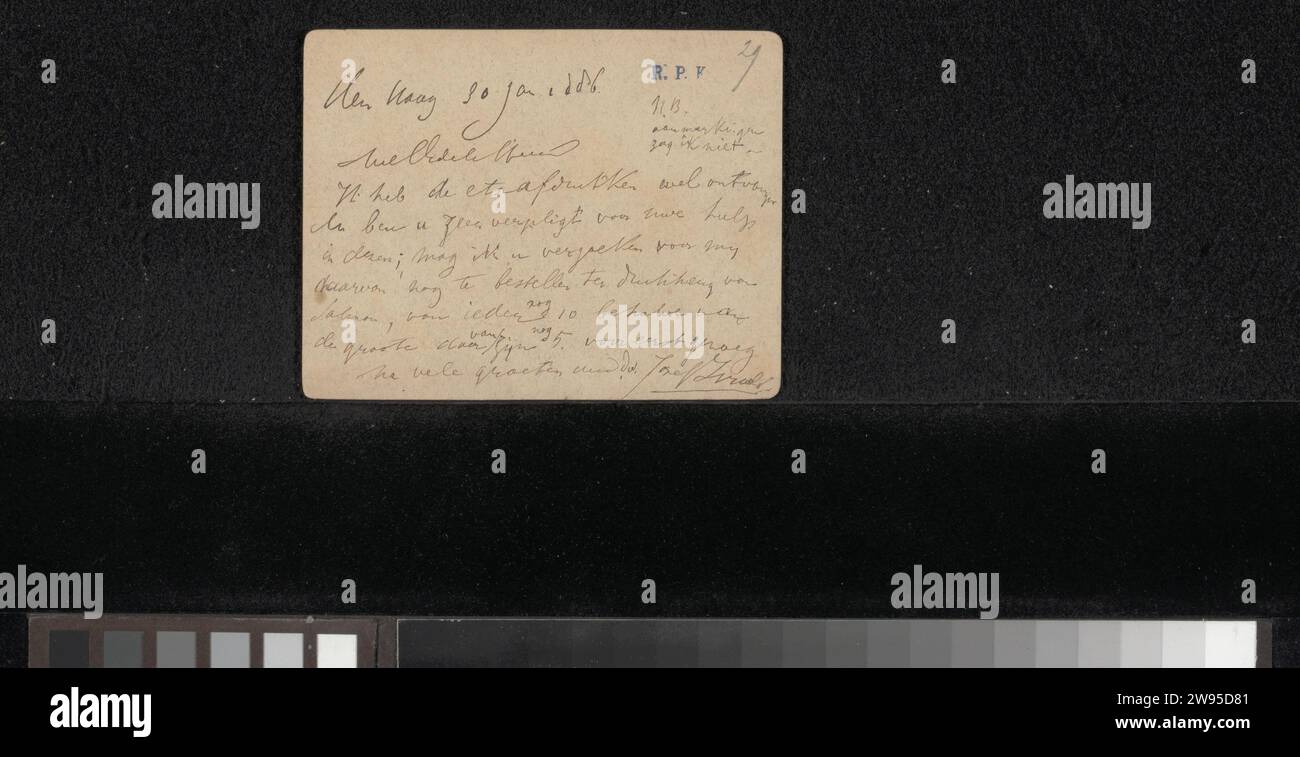 29
R. P. K
Den Haag 30 Jan 1886.
N.B.
aanmerkingen
zag ik niet
WelEdele Heer
Ik heb de etsafdrukken wel ontvangen
en ben u zeer verpligt voor uwe hulp
in dezen; mag ik u verzoeken voor my
daarvan nog te bestellen ter
van ieder nog 10
de groote van zyn nog 5.
na vele groeten Jozef Israels
alamy
Image ID: 2W95D81
www.alamy.com